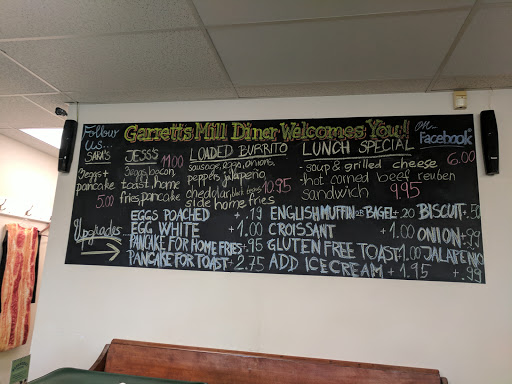 Follow Us... Garrett's Mill Diner Welcomes You!! on Facebook
SARA'S
eggs +
pancake
5.00
JESS'S 11.00
eggs, bacon,
toast, home
fries, pancake
LOADED BURRITO
sausage, egg, onions,
peppers, jalapeño
cheddar 10.95
side home fries
LUNCH SPECIAL
- soup & grilled cheese 6.00
- hot corned beef reuben
sandwich 9.95
Upgrades
EGGS POACHED + .19
EGG WHITE + 1.00
PANCAKE FOR HOME FRIES + .95
PANCAKE FOR TOAST + 2.75
ENGLISH MUFFIN OR BAGEL + .20
CROISSANT + 1.00
GLUTEN FREE TOAST 1.00
ADD ICE CREAM + 1.95
BISCUIT + .50
ONION + .99
JALAPENO
+ .99